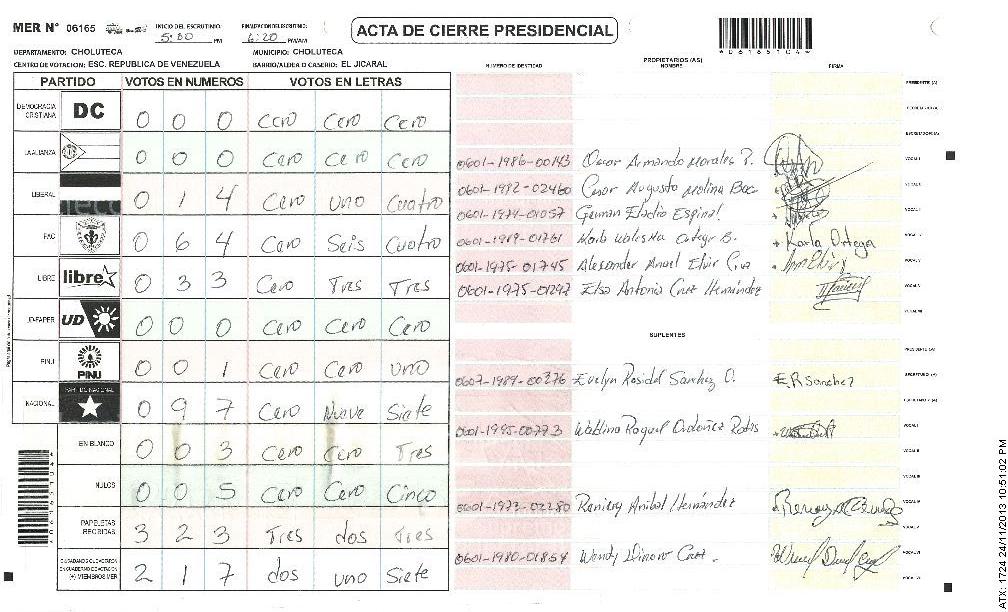 MER N° 06165 INICIO DEL ESCRUTINIO: 5:00 PM FINALIZACION ESCRUTINIO: 6:20 PM/AM
ACTA DE CIERRE PRESIDENCIAL
06165104
DEPARTAMENTO: CHOLUTECA MUNICIPIO: CHOLUTECA
CENTRO DE VOTACION: ESC. REPUBLICA DE VENEZUELA BARRIO/ALDEA O CASERIO: EL JICARAL
PARTIDO VOTOS EN NUMEROS VOTOS EN LETRAS
DEMOCRACIA CRISTIANA DC 0 0 0 Cero Cero Cero
LA ALIANZA 0 0 0 Cero Cero Cero
LIBERAL 0 1 4 Cero Uno Cuatro
PAC 0 6 4 Cero Seis Cuatro
LIBRE libre 0 3 3 Cero Tres Tres
UD-FAPER UD 0 0 0 Cero Cero Cero
PINU PINU 0 0 1 Cero Cero Uno
NACIONAL PARTIDO NACIONAL 0 9 7 Cero Nueve Siete
EN BLANCO 0 0 3 Cero Cero Tres
NULOS 0 0 5 Cero Cero Cinco
PAPELETAS RECIBIDAS 3 2 3 Tres dos Tres
CIUDADANOS QUE VOTARON EN CUADERNO DE VOTACION (+) MIEMBROS MER 2 1 7 dos uno Siete
PROPIETARIOS (AS)
NUMERO DE IDENTIDAD NOMBRE FIRMA
PRESIDENTE (A)
SECRETARIO (A)
ESCRUTADOR (A)
0601-1986-00143 Oscar Armando Morales P. VOCAL I
0601-1982-02460 Cesar Augusto Molina VOCAL II
0601-1974-01057 German Eladio Espinal VOCAL III
0601-1989-01761 Karla Waleska Ortega B. Karla Ortega VOCAL IV
0601-1975-01745 Alexander Angel Elvir Cruz VOCAL V
0601-1975-01247 Elsa Antonia Cruz Hernández VOCAL VI
VOCAL VII
SUPLENTES
PRESIDENTE (A)
0607-1989-00376 Evelyn Rosidel Sanchez O. E.R Sanchez SECRETARIO (A)
ESCRUTADOR (A)
0601-1995-00773 Raquel Ordoñez VOCAL I
VOCAL II
VOCAL III
0601-1973-02280 Anibal Hernández VOCAL IV
VOCAL V
0601-1980-01854 Wendy Cruz VOCAL VI
VOCAL VII
ATX: 1724 24/11/2013 10:51:02 PM